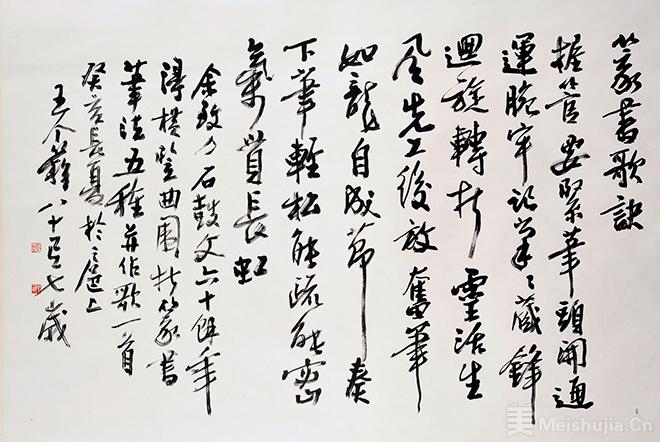 篆書歌訣
握管要緊筆頭開通
運腕牢記筆筆藏鋒
迴旋轉折靈活生
風先工後放奮筆
如龍自成節奏
下筆輕松能疏能密
氣貫長虹
余致力石鼓文六十餘年
淂橫豎曲圍折篆書
筆法五種并作歌一首
癸亥長夏於上
王个簃八十七歲
美 Meishujia.Cn